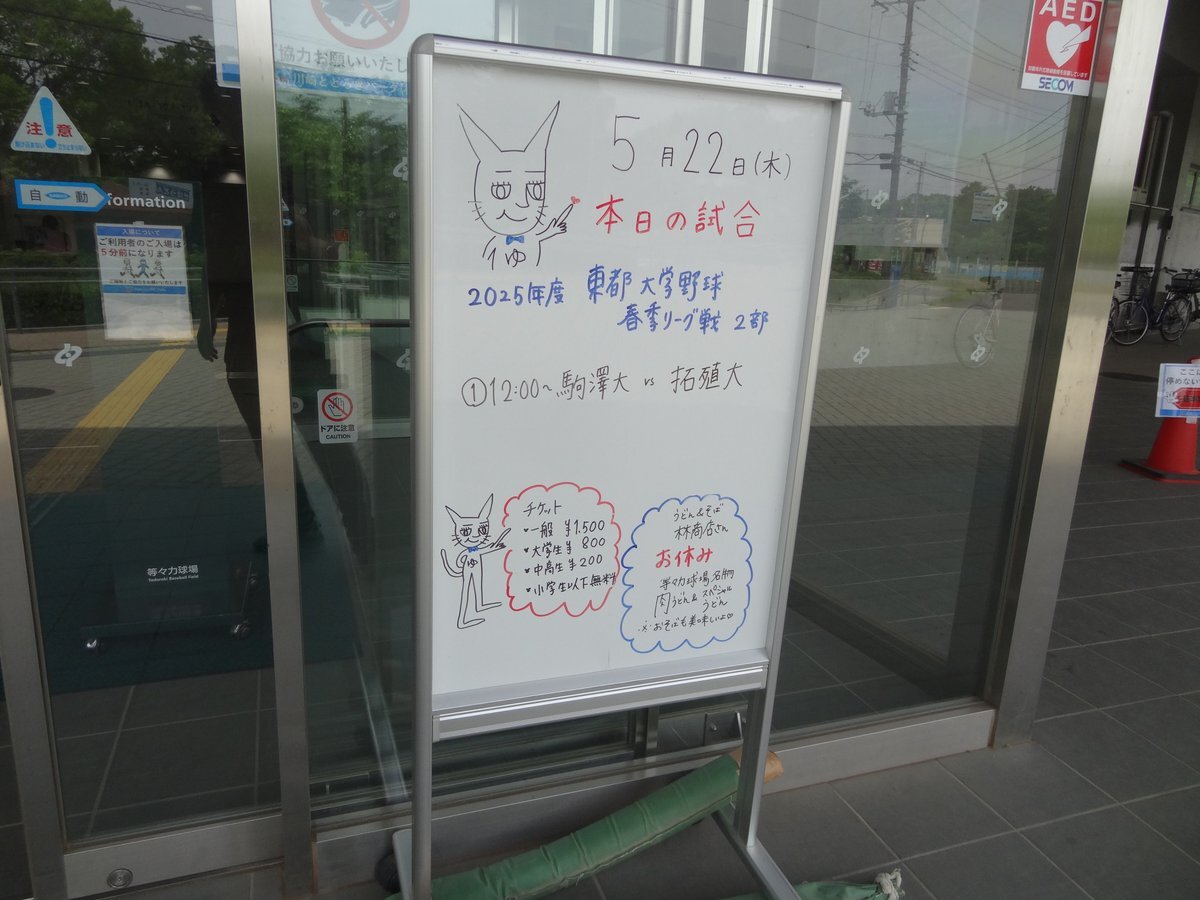 協力お願いいたし
注意
自動
Information
入場について
ご利用者のご入場は
5分前になります
ドアに注意
CAUTION
等々力球場
Todoroki Baseball Field
AED
SECOM
ここに
停めない
5月22日(木)
本日の試合
ゆ
2025年度 東都大学野球
春季リーグ戦 2部
①12:00~駒澤大 vs 拓殖大
チケット
・一般 ¥1,500
・大学生¥ 800
・中高生¥ 200
・小学生以下無料
ゆ
うどん&そば
林商店さん
お休み
等々力球場名物
肉うどん&スペシャル
うどん
※おそばも美味しいよ♡